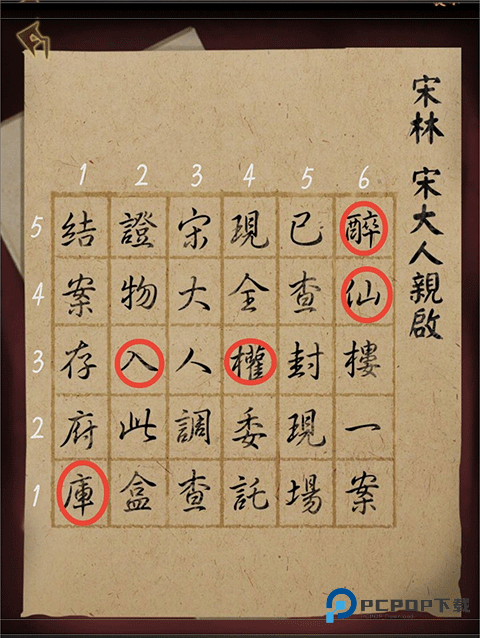 宋林 宋大人親啟
1 2 3 4 5 6
5 結 證 宋 現 已 醉
4 案 物 大 全 查 仙
3 存 入 人 權 封 樓
2 府 此 調 委 現 一
1 庫 盒 查 託 場 案
PCPOP下载